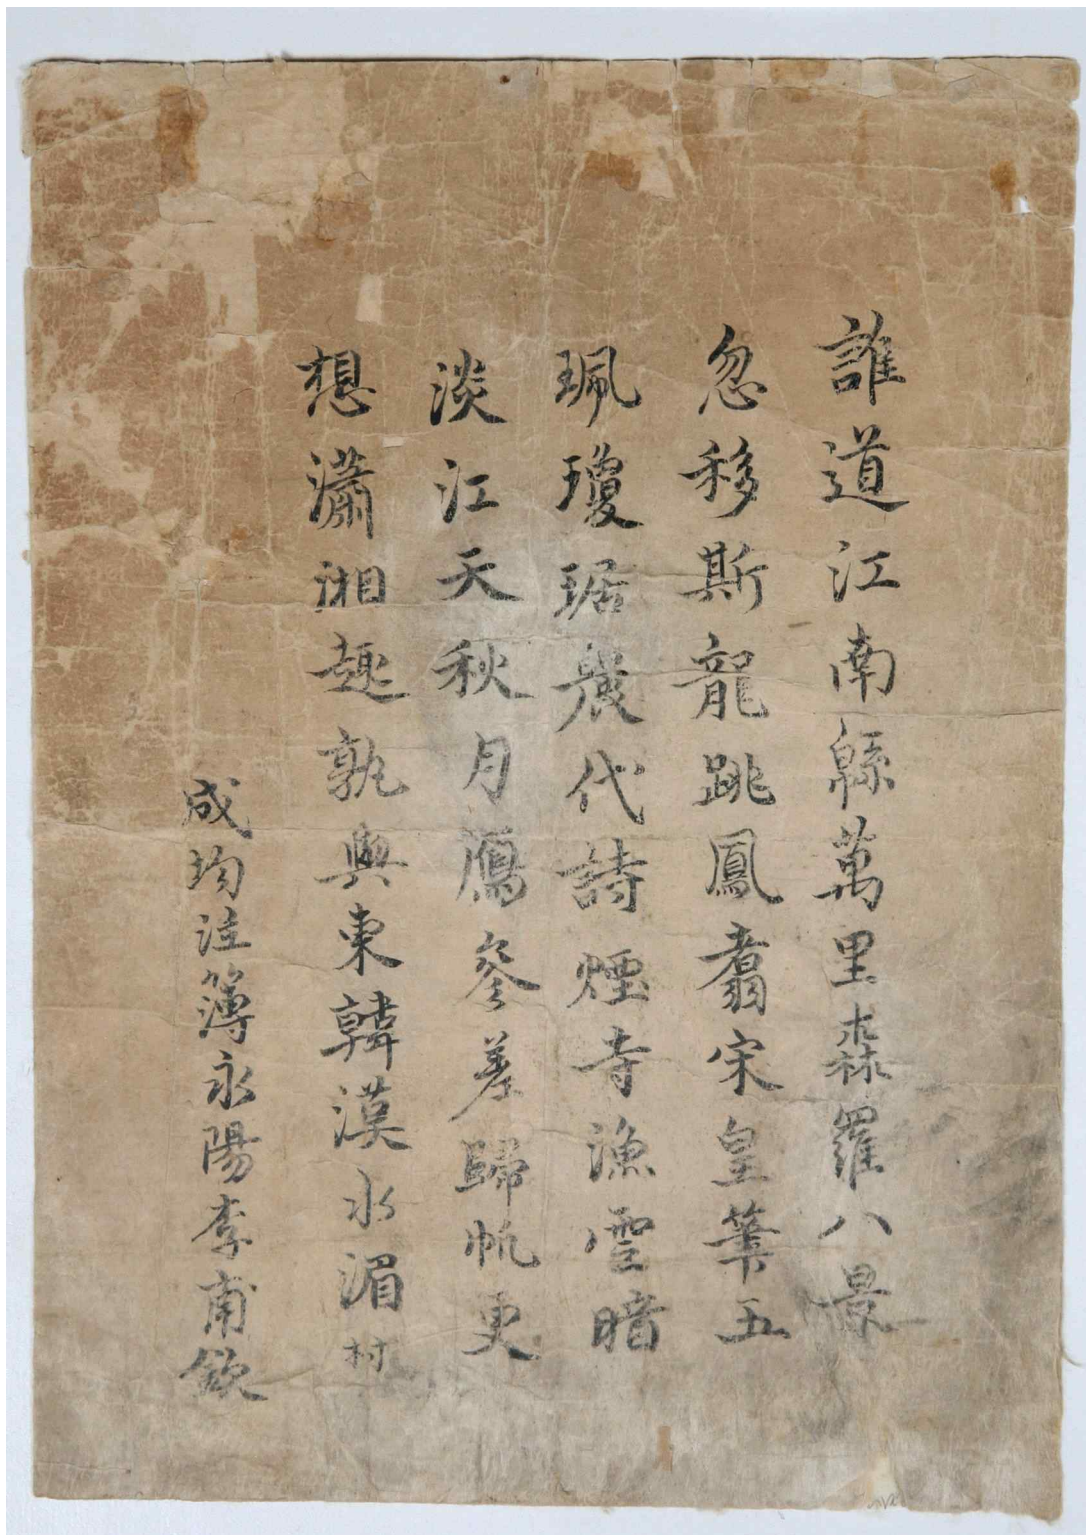 誰道江南緜萬里森羅八景
忽移斯龍跳鳳翥宋皇筆五
珮瓊琚幾代詩煙寺漁雪暗
淡江天秋月鴈參差歸帆更
想瀟湘趣孰與東韓漢水湄村
成均注簿永陽李甫欽